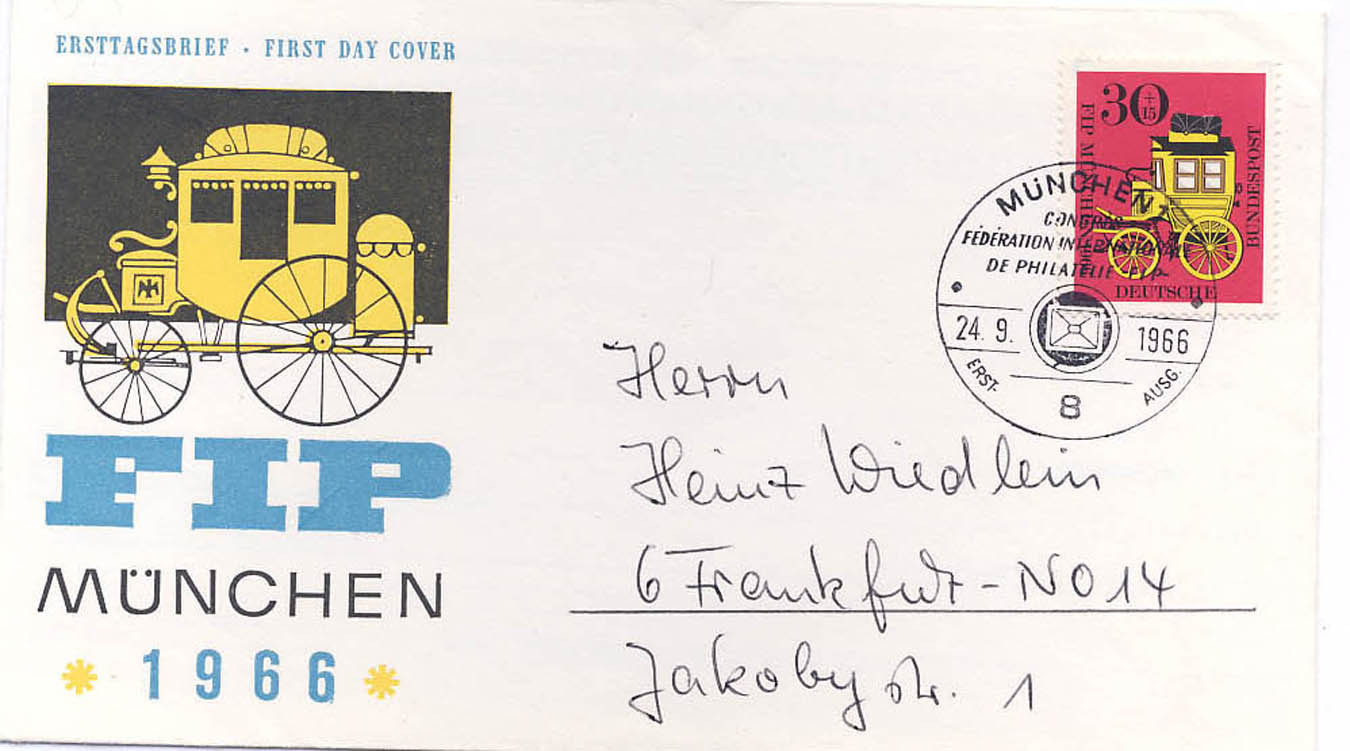 ERSTTAGSBRIEF · FIRST DAY COVER
FIP
MÜNCHEN
* 1966 *
30
+
15
FIP MÜNCHEN 1966
BUNDESPOST
DEUTSCHE
MÜNCHEN
CONGRÈS
FÉDÉRATION INTERNATIONALE
DE PHILATÉLIE -FIP-
24. 9. 1966
ERST- AUSG.
8
Herrn
Heinz Wiedlein
6 Frankfurt-NO 14
Jakoby str. 1